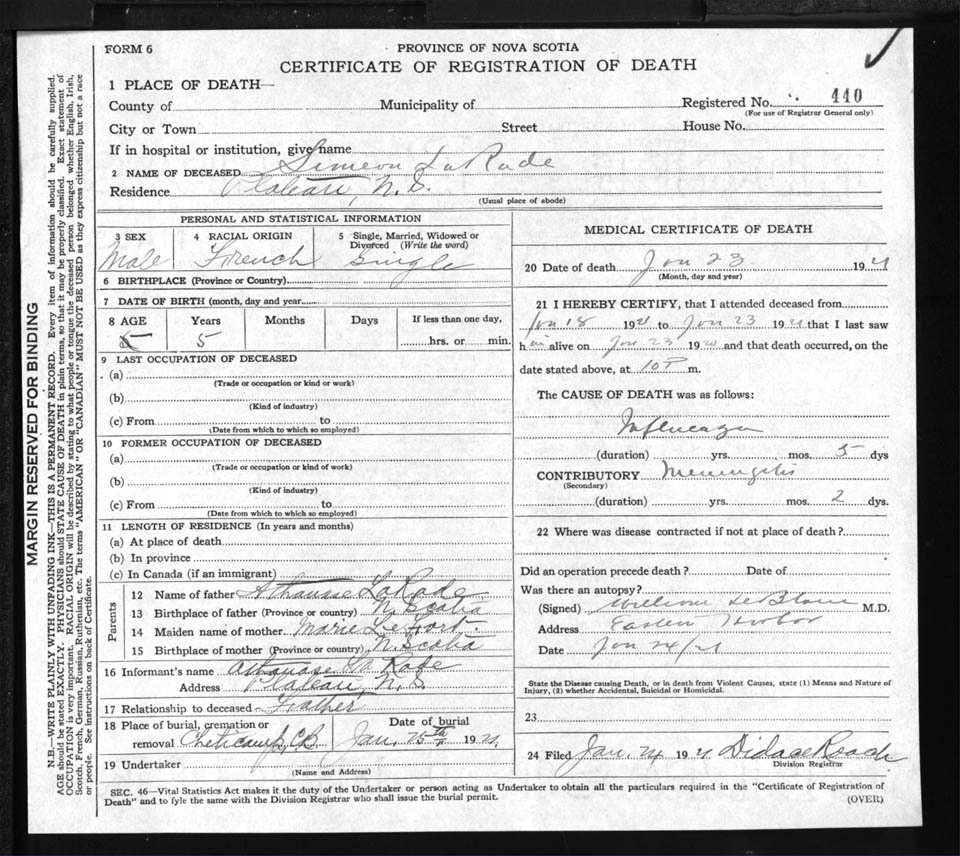 FORM 6
PROVINCE OF NOVA SCOTIA
CERTIFICATE OF REGISTRATION OF DEATH
MARGIN RESERVED FOR BINDING
N.B.—WRITE PLAINLY WITH UNFADING INK—THIS IS A PERMANENT RECORD. Every item of information should be carefully supplied.
AGE should be stated EXACTLY. PHYSICIANS should STATE CAUSE OF DEATH in plain terms, so that it may be properly classified. Exact statement of
OCCUPATION is very important. RACIAL ORIGIN will be described by stating to what people or tongue the deceased person belonged whether English, Irish,
Scotch, French, German, Russian, Ruthenian, etc. The terms "AMERICAN" OR "CANADIAN" MUST NOT BE USED as they express citizenship but not a race
or people. See instructions on back of Certificate.
1 PLACE OF DEATH—
County of Municipality of Registered No. 440
(For use of Registrar General only)
City or Town Street House No.
If in hospital or institution, give name
2 NAME OF DECEASED Simeon LaRade
Residence Plateau, N.S.
(Usual place of abode)
PERSONAL AND STATISTICAL INFORMATION
3 SEX 4 RACIAL ORIGIN 5 Single, Married, Widowed or
Divorced (Write the word)
Male French Single
6 BIRTHPLACE (Province or Country)
7 DATE OF BIRTH (month, day and year
8 AGE Years Months Days If less than one day,
5 hrs. or min.
9 LAST OCCUPATION OF DECEASED
(a)
(Trade or occupation or kind or work)
(b)
(Kind of industry)
(c) From to
(Date from which to which so employed)
10 FORMER OCCUPATION OF DECEASED
(a)
(Trade or occupation or kind of work)
(b)
(Kind of industry)
(c) From to
(Date from which to which so employed)
11 LENGTH OF RESIDENCE (In years and months)
(a) At place of death
(b) In province
(c) In Canada (if an immigrant)
Parents
12 Name of father Athanase LaRade
13 Birthplace of father (Province or country) N. Scotia
14 Maiden name of mother Marie LeFort.
15 Birthplace of mother (Province or country) N. Scotia
16 Informant's name Athanase La Rade
Address Plateau, N. S.
17 Relationship to deceased Father
18 Place of burial, cremation or Date of burial
removal Cheticamp, CB Jan. 25th 1921.
19 Undertaker
(Name and Address)
MEDICAL CERTIFICATE OF DEATH
20 Date of death Jan 23 1921
(Month, day and year)
21 I HEREBY CERTIFY, that I attended deceased from
Jan 18 1921 to Jan 23 1921 that I last saw
him alive on Jan 23 1921 and that death occurred, on the
date stated above, at 10 P m.
The CAUSE OF DEATH was as follows:
Influenza
(duration) yrs. mos. 5 dys
CONTRIBUTORY Meningitis
(Secondary)
(duration) yrs. mos. 2 dys.
22 Where was disease contracted if not at place of death?
Did an operation precede death? Date of
Was there an autopsy?
(Signed) William LeBlanc M.D.
Address Eastern Harbor
Date Jan 24/21
State the Disease causing Death, or in death from Violent Causes, state (1) Means and Nature of
Injury, (2) whether Accidental, Suicidal or Homicidal.
23
24 Filed Jan. 24 1921 Didace Roach
Division Registrar
SEC. 46—Vital Statistics Act makes it the duty of the Undertaker or person acting as Undertaker to obtain all the particulars required in the "Certificate of Registration of
Death" and to fyle the same with the Division Registrar who shall issue the burial permit.
(OVER)